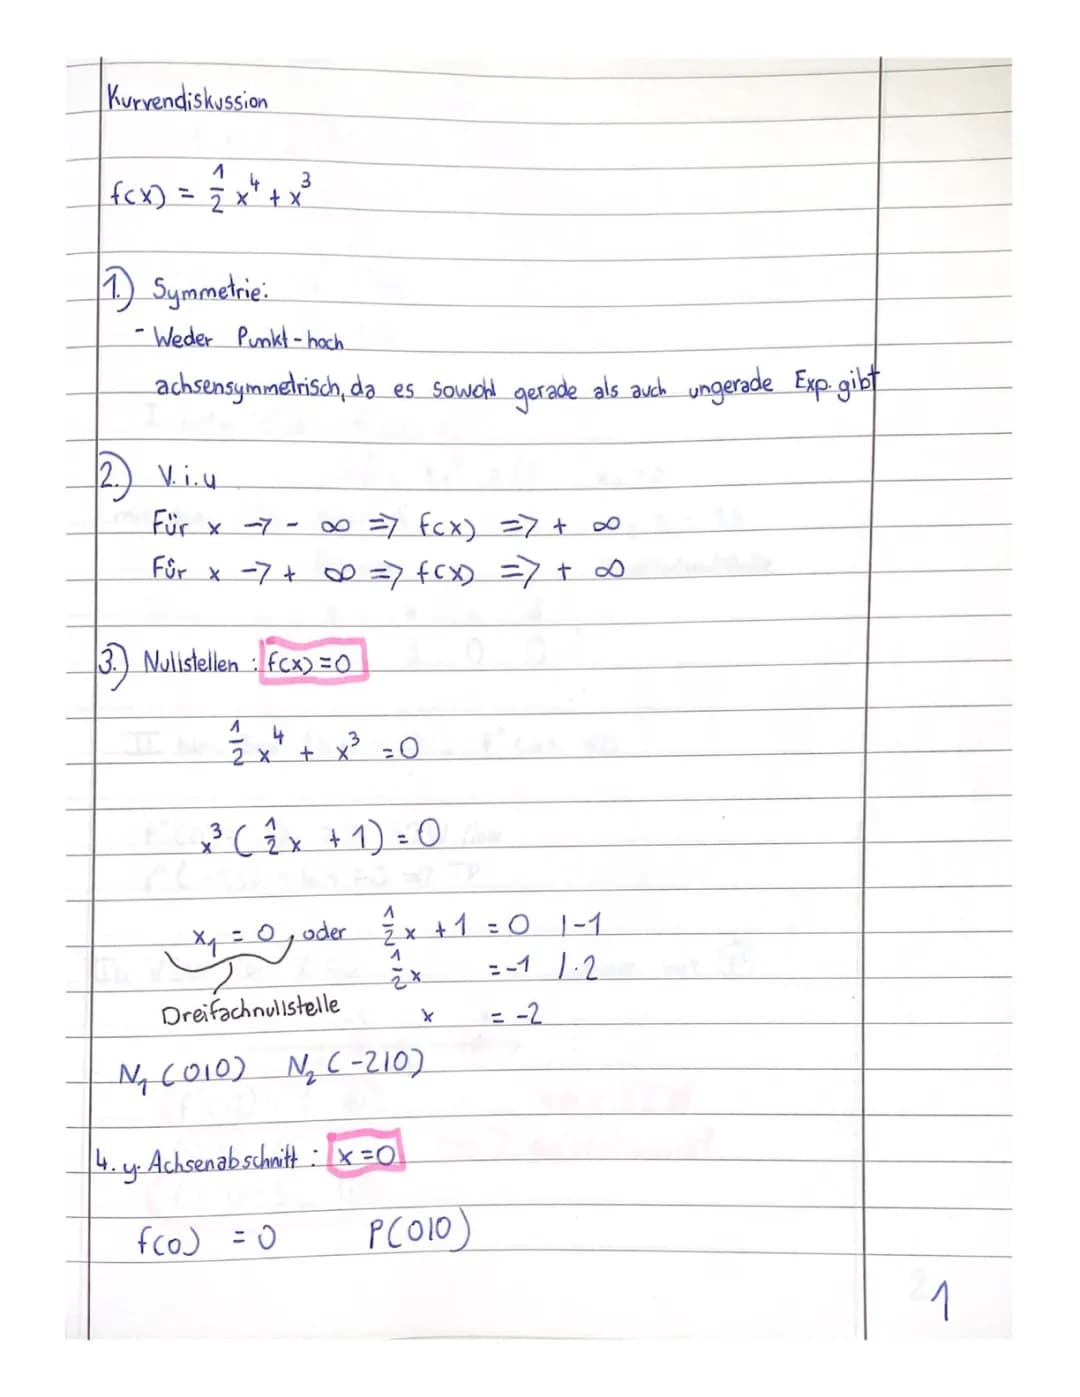 Kurvendiskussion
f(x) = 1/2 x⁴ + x³
1.) Symmetrie:
- Weder Punkt-hoch
achsensymmetrisch, da es sowohl gerade als auch ungerade Exp. gibt
2.) V.i.u
Für x → - ∞ => f(x) => + ∞
Für x → + ∞ => f(x) => + ∞
3.) Nullstellen : f(x) = 0
1/2 x⁴ + x³ = 0
x³ ( 1/2 x + 1) = 0
x₁ = 0, oder 1/2 x + 1 = 0 | -1
1/2 x = -1 | · 2
Dreifachnullstelle x = -2
N₁ (0|0) N₂ (-2|0)
4. y. Achsenabschnitt : x = 0
f(0) = 0 P(0|0)
1